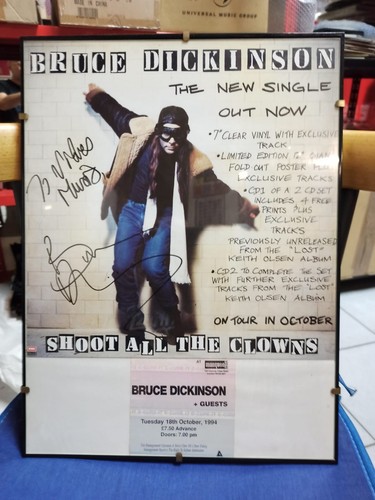 UNIVERSAL MUSIC GROUP
BRUCE DICKINSON
THE NEW SINGLE
OUT NOW
• 7" CLEAR VINYL WITH EXCLUSIVE
TRACK
• LIMITED EDITION
FOLD OUT POSTER
EXCLUSIVE TRACKS
• CD1 OF A 2 CD SET
INCLUDES 4 FREE
PRINTS PLUS
EXCLUSIVE
TRACKS
PREVIOUSLY UNRELEASED
FROM THE "LOST"
KEITH OLSEN ALBUM
• CD2 TO COMPLETE THE SET
WITH FURTHER EXCLUSIVE
TRACKS FROM THE "LOST"
KEITH OLSEN ALBUM
ON TOUR IN OCTOBER
SHOOT ALL THE CLOWNS
BRUCE DICKINSON
+ GUESTS
Tuesday 18th October, 1994
£7.50 Advance
Doors: 7.00 pm